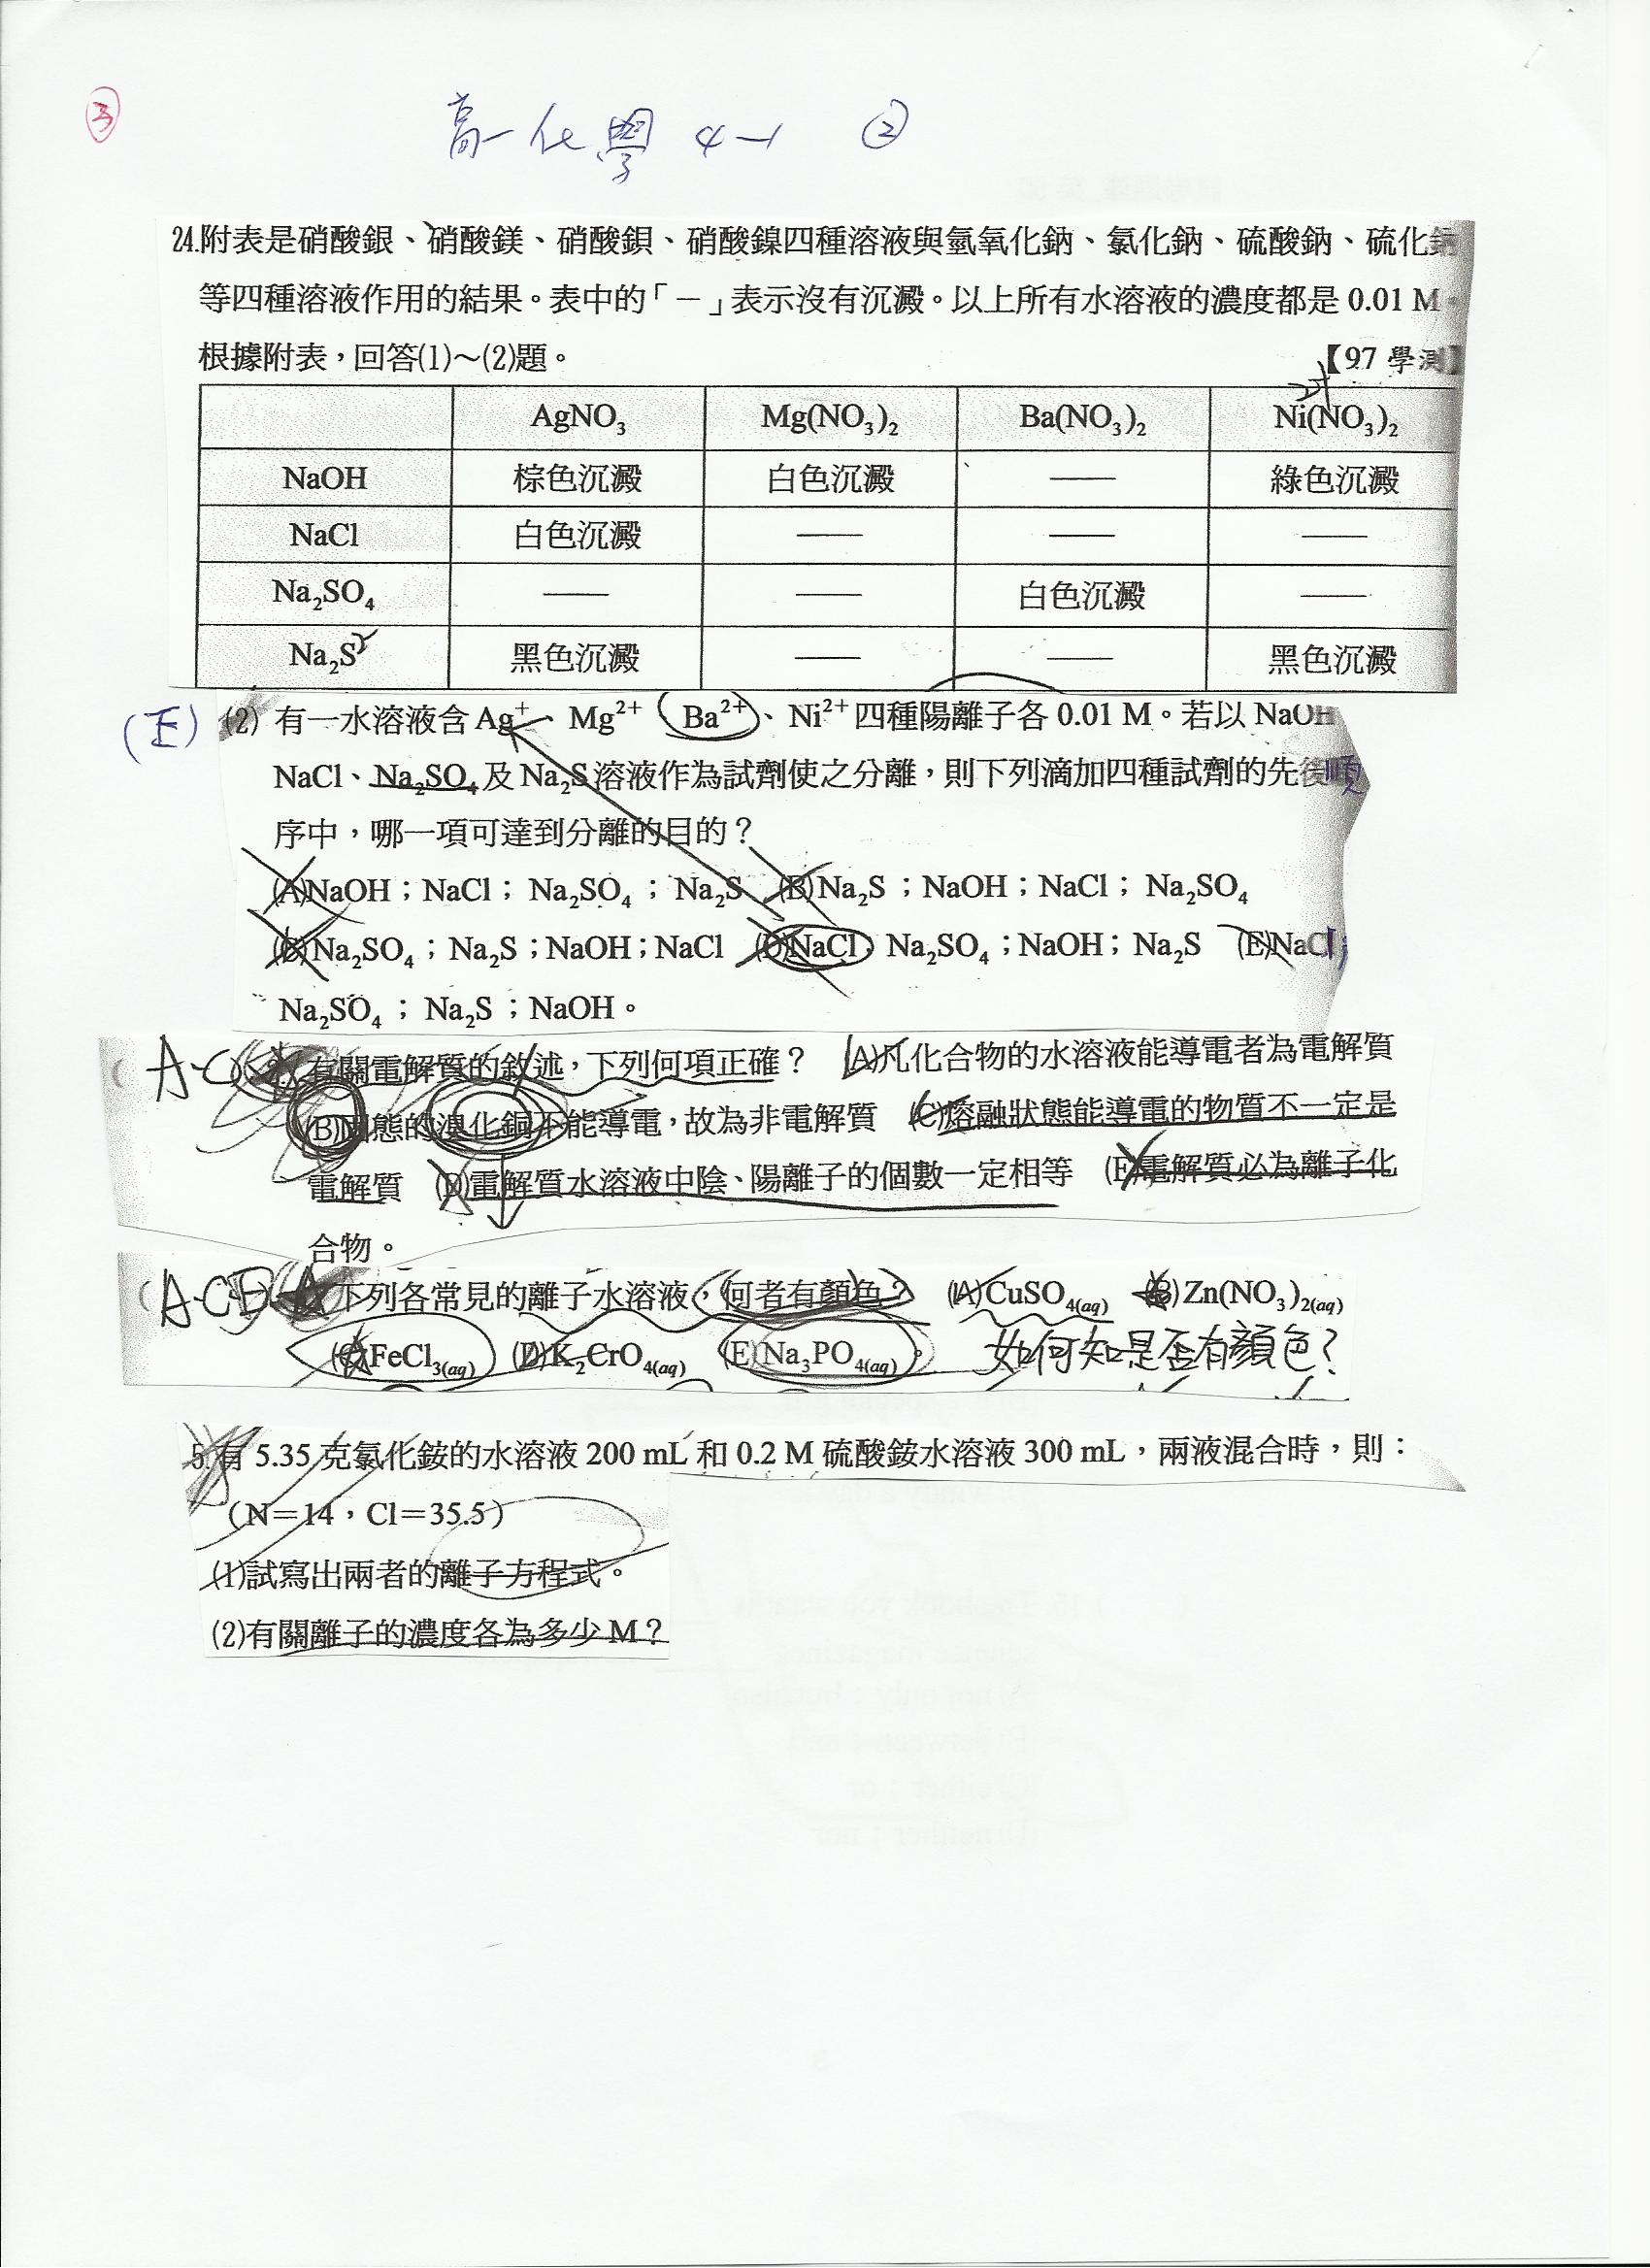 3
高一化學 4-1 ②
24.附表是硝酸銀、硝酸鎂、硝酸鋇、硝酸鎳四種溶液與氫氧化鈉、氯化鈉、硫酸鈉、硫化鈉
等四種溶液作用的結果。表中的「－」表示沒有沉澱。以上所有水溶液的濃度都是 0.01 M。
根據附表，回答(1)～(2)題。 【97 學測】
AgNO₃ Mg(NO₃)₂ Ba(NO₃)₂ Ni(NO₃)₂
NaOH 棕色沉澱 白色沉澱 —— 綠色沉澱
NaCl 白色沉澱 —— —— ——
Na₂SO₄ —— —— 白色沉澱 ——
Na₂S 黑色沉澱 —— —— 黑色沉澱
(E) (2) 有一水溶液含 Ag⁺、Mg²⁺、Ba²⁺、Ni²⁺ 四種陽離子各 0.01 M。若以 NaOH
NaCl、Na₂SO₄ 及 Na₂S 溶液作為試劑使之分離，則下列滴加四種試劑的先後順
序中，哪一項可達到分離的目的？
(A)NaOH；NaCl；Na₂SO₄；Na₂S (B)Na₂S；NaOH；NaCl；Na₂SO₄
(C)Na₂SO₄；Na₂S；NaOH；NaCl (D)NaCl；Na₂SO₄；NaOH；Na₂S (E)NaCl；
Na₂SO₄；Na₂S；NaOH。
AC 有關電解質的敘述，下列何項正確？ (A)凡化合物的水溶液能導電者為電解質
(B)固態的溴化銅不能導電，故為非電解質 (C)熔融狀態能導電的物質不一定是
電解質 (D)電解質水溶液中陰、陽離子的個數一定相等 (E)電解質必為離子化
合物。
ACD 下列各常見的離子水溶液，何者有顏色？ (A)CuSO₄(aq) (B)Zn(NO₃)₂(aq)
(C)FeCl₃(aq) (D)K₂CrO₄(aq) (E)Na₃PO₄(aq)。 如何知是否有顏色？
5.有 5.35 克氯化銨的水溶液 200 mL 和 0.2 M 硫酸銨水溶液 300 mL，兩液混合時，則：
（N＝14，Cl＝35.5）
(1)試寫出兩者的離子方程式。
(2)有關離子的濃度各為多少 M？